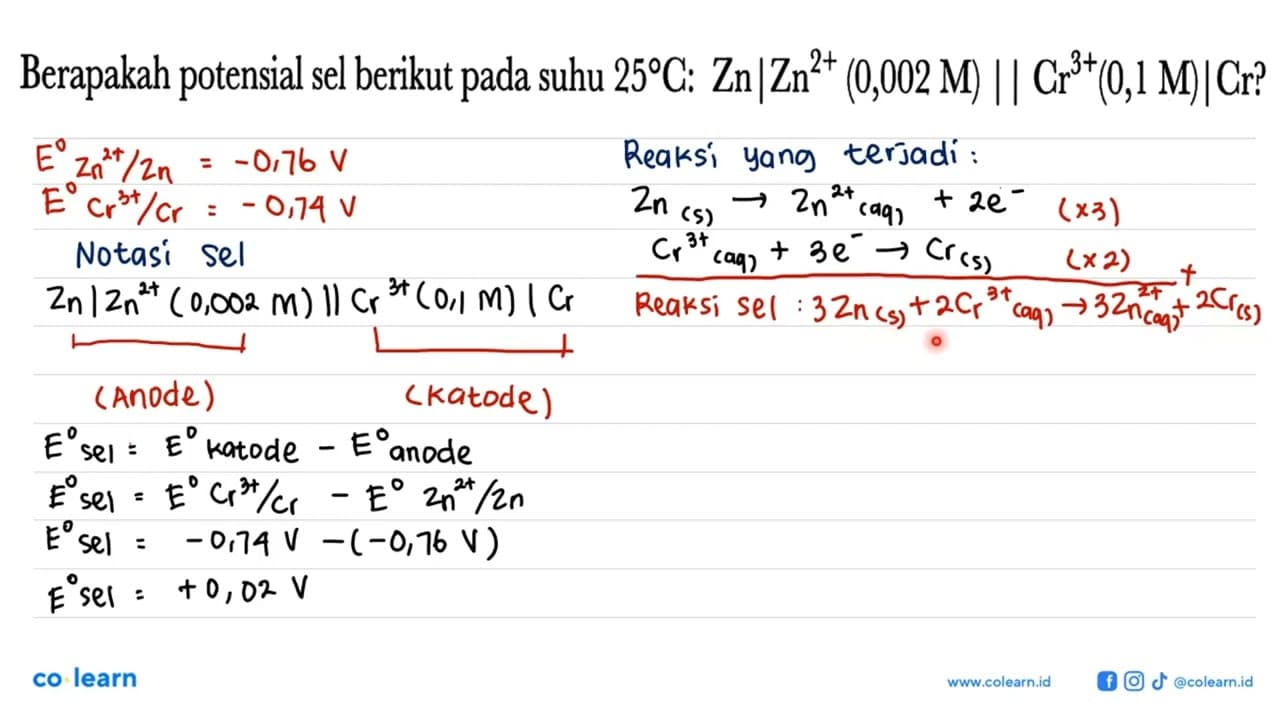 Berapakah potensial sel berikut pada suhu 25°C: Zn|Zn²⁺ (0,002 M) || Cr³⁺(0,1 M)|Cr?
E⁰ Zn²⁺/Zn = -0,76 V
E⁰ Cr³⁺/Cr = -0,74 V
Notasi sel
Zn | Zn²⁺ (0,002 M) || Cr³⁺ (0,1 M) | Cr
(Anode) (Katode)
E⁰sel = E⁰ katode - E⁰ anode
E⁰sel = E⁰ Cr³⁺/Cr - E⁰ Zn²⁺/Zn
E⁰sel = -0,74 V -(-0,76 V)
E⁰sel = +0,02 V
Reaksi yang terjadi :
Zn (s) → Zn²⁺ (aq) + 2e⁻ (x3)
Cr³⁺ (aq) + 3e⁻ → Cr (s) (x2) +
Reaksi sel : 3Zn (s) + 2Cr³⁺ (aq) → 3Zn²⁺ (aq) + 2Cr (s)
co learn
www.colearn.id
@colearn.id